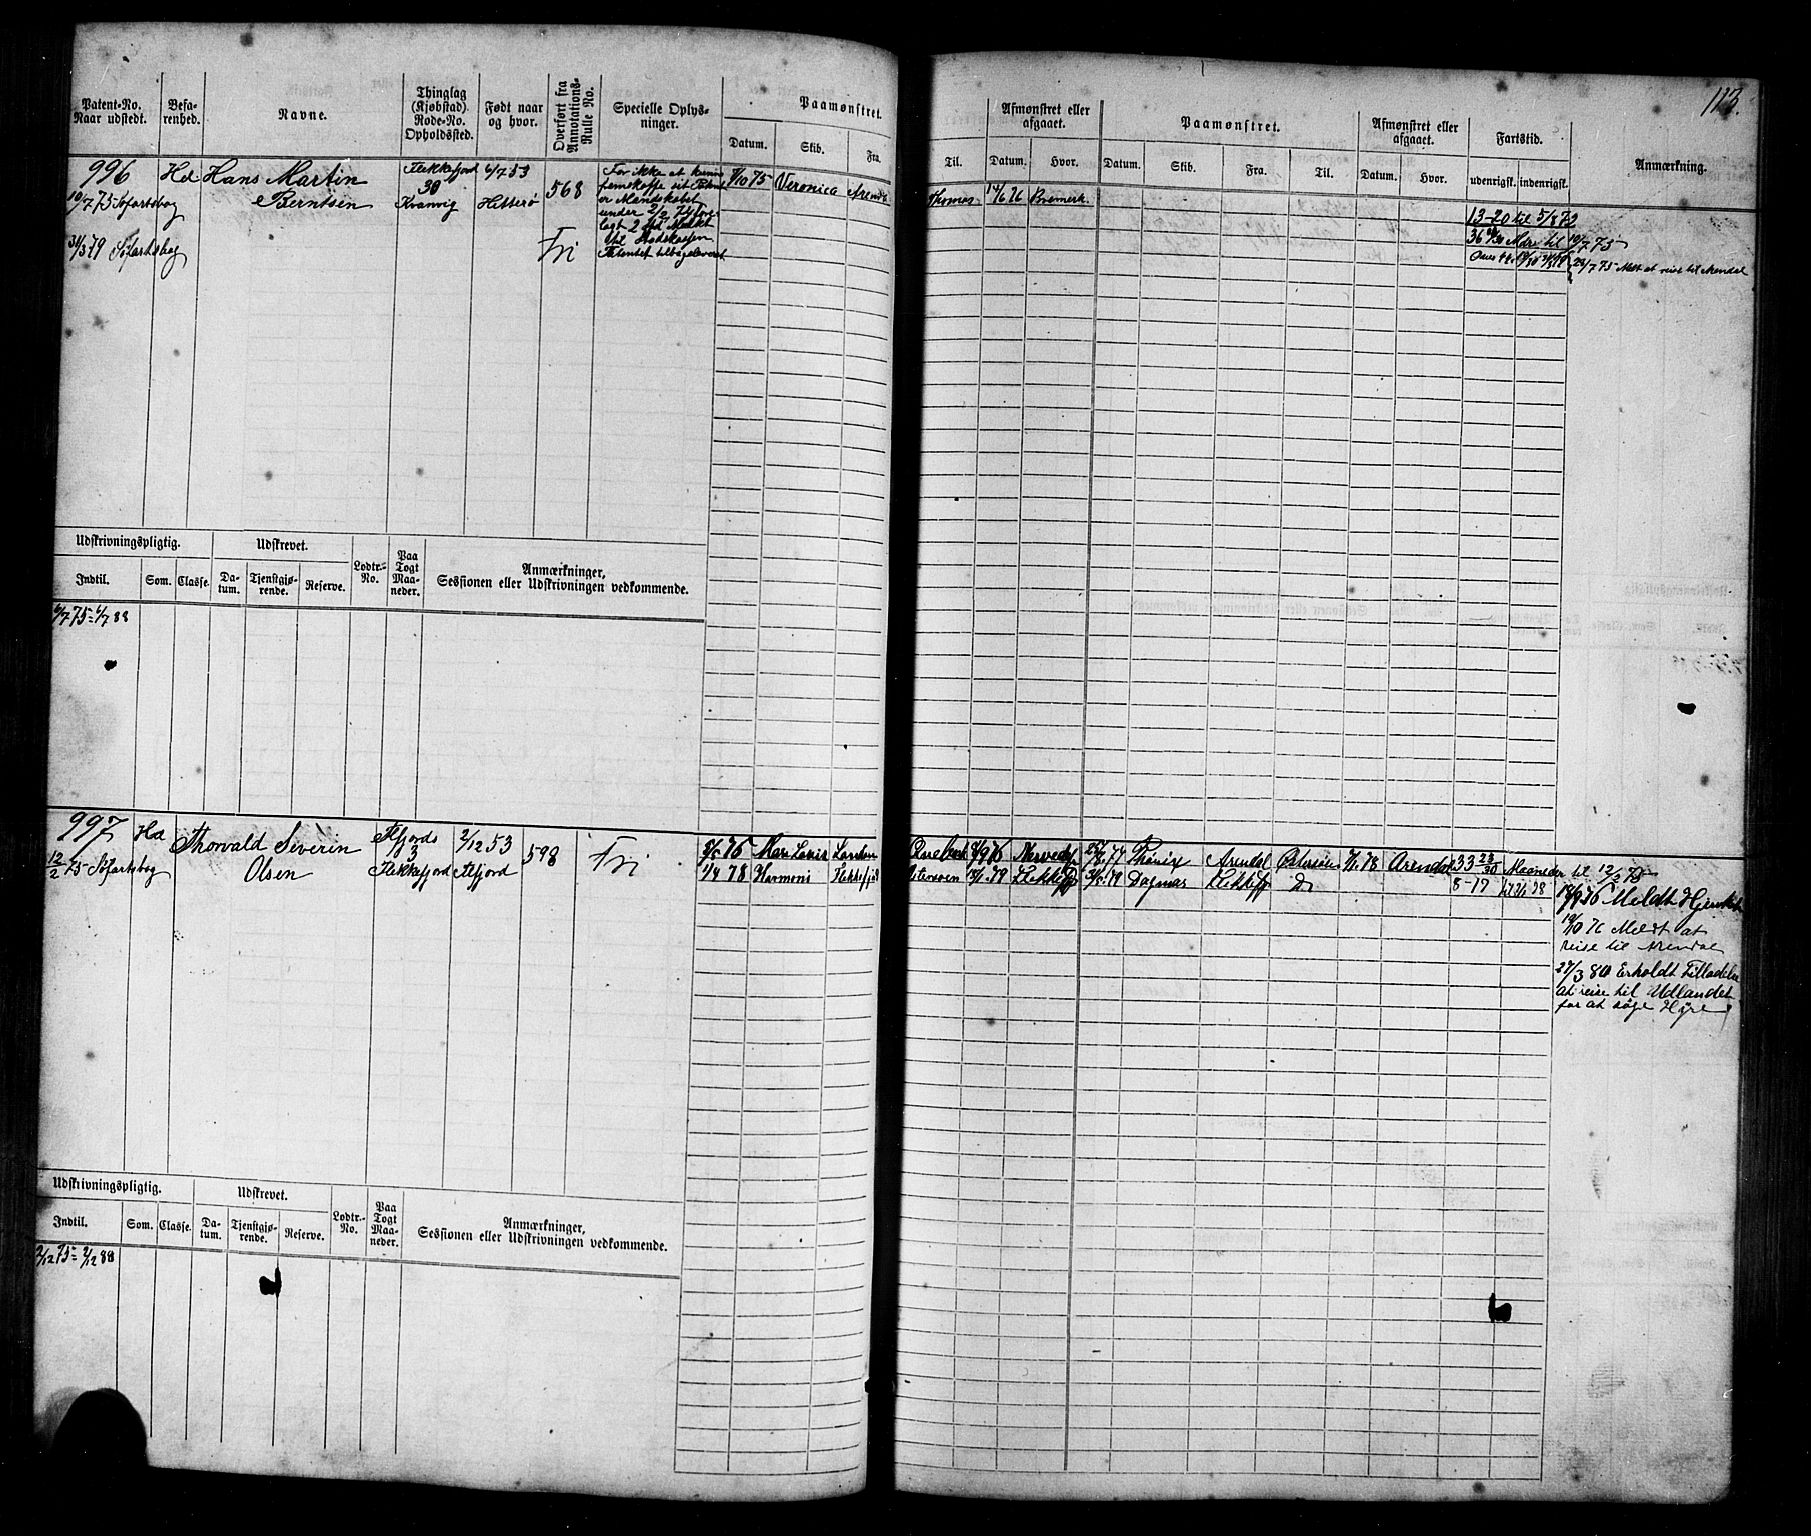 113.
Patent-No. Naar udstedt.
Befarenhed.
Navne.
Thinglag (Kjøbstad). Rode-No. Opholdssted.
Født naar og hvor.
Overført fra Annotations-Rulle No.
Specielle Oplysninger.
Paamønstret.
Datum. Skib. Fra. Til.
Afmønstret eller afgaaet.
Datum. Hvor.
Paamønstret.
Datum. Skib. Fra. Til.
Afmønstret eller afgaaet.
Datum. Hvor.
Fartstid.
udenrigsk. indenrigsk.
Anmærkning.
996 Hd Hans Martin Flekkefjord 6/7 53
10/7 75 Søfartsbog Berntsen 30 Kvanvig Hitterø 568
31/3 79 Søfartsbog Fri
For ikke at kunne
fremskaffe sit Patent
er Mandskabet
under 2/2 75
lagt 2 Mulkt
til Statskassen
Patentet tilbageleveret
10 75 Veronica Arendal Thomas 14/6 76 Bremerh.
13-20 til 5/8 72
36 Mdr til 10/7 75
23/7 75 Meldt at reise til Arendal
Udskrivningspligtig. Udskrevet. Lodtr.-No. Paa Togt Maaneder. Anmærkninger, Sessionen eller Udskrivningen vedkommende.
Indtil. Som. Classe. Datum. Tjenstgjørende. Reserve.
6/7 75 - 6/7 88
997 Hd Thorvald Severin Flfjords 2/12 53
12/2 75 Søfartsbog Olsen 3 Flekkefjord Flfjord 598 Fri
76 London 9 76
1/4 78 Harmoni Flekkefjord 79 Flekkefj 79 Dagmar Flekkefj Do
77 Phønix Arendal Østersøen 78 Arendal
33 23/30 Maaneder til 12/2 75
8-17
18/9 76 Meldt Hjemkst
19/10 76 Meldt at
reise til Arendal
27/3 80 Erholdt Tilladelse
at reise til Udlandet
for at søge Hyre
Udskrivningspligtig. Udskrevet. Lodtr.-No. Paa Togt Maaneder. Anmærkninger, Sessionen eller Udskrivningen vedkommende.
Indtil. Som. Classe. Datum. Tjenstgjørende. Reserve.
2/12 75 - 2/12 88